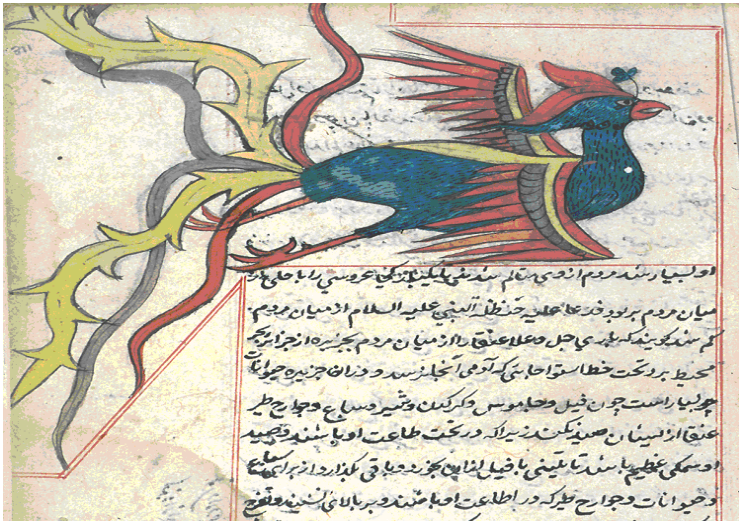 او بسیار شد مردم از وی متالم شدند عروسی را با حلی از
میان مردم بربود فدعا علیه حنظلة النبی علیه السلام از میان مردم
کم شد کویند که باری جل و علا عنقا را از میان مردم بجزیره از جزایر بحر
محیط برد تحت خط استوا که آدمی آنجا نرسد و در آن جزیره حیوانات
بسیار است چون فیل و جاموس و کرکدن و شیر و سباع و جوارح طیر
عنقا از ایشان صید نکند زیرا که در تحت طاعت او باشند و صید
او سمکی عظیم باشد یا تنینی یا فیل از این بخورد و باقی بگذارد از برای سباع
و حیوانات و جوارح طیر که در اطاعت او باشند و بر بالای نشیند و تفرج